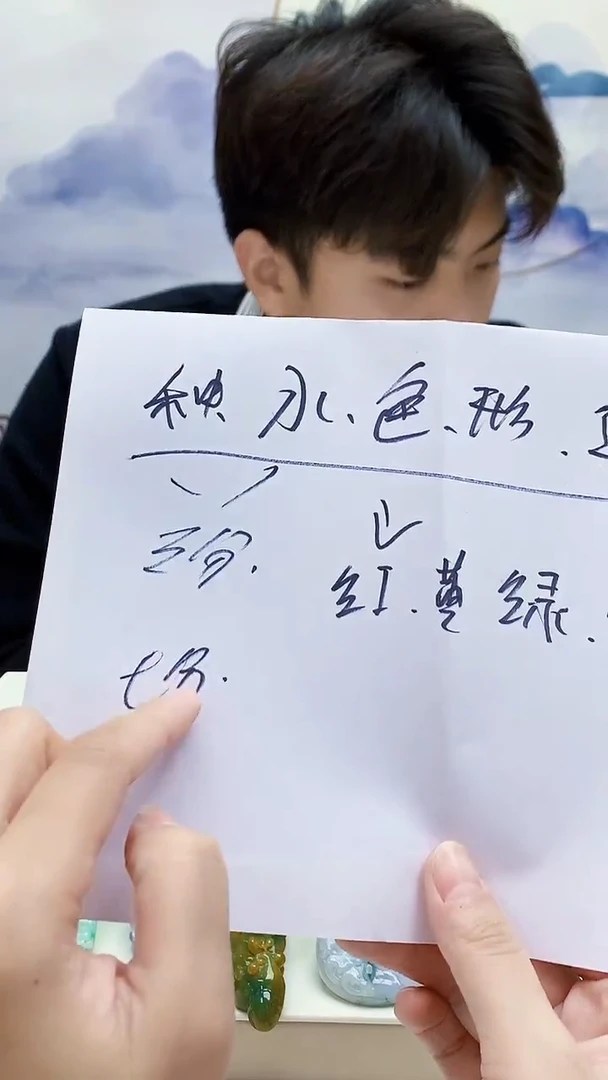 种、水、色、形、
三分.
红.黄绿.
七分.